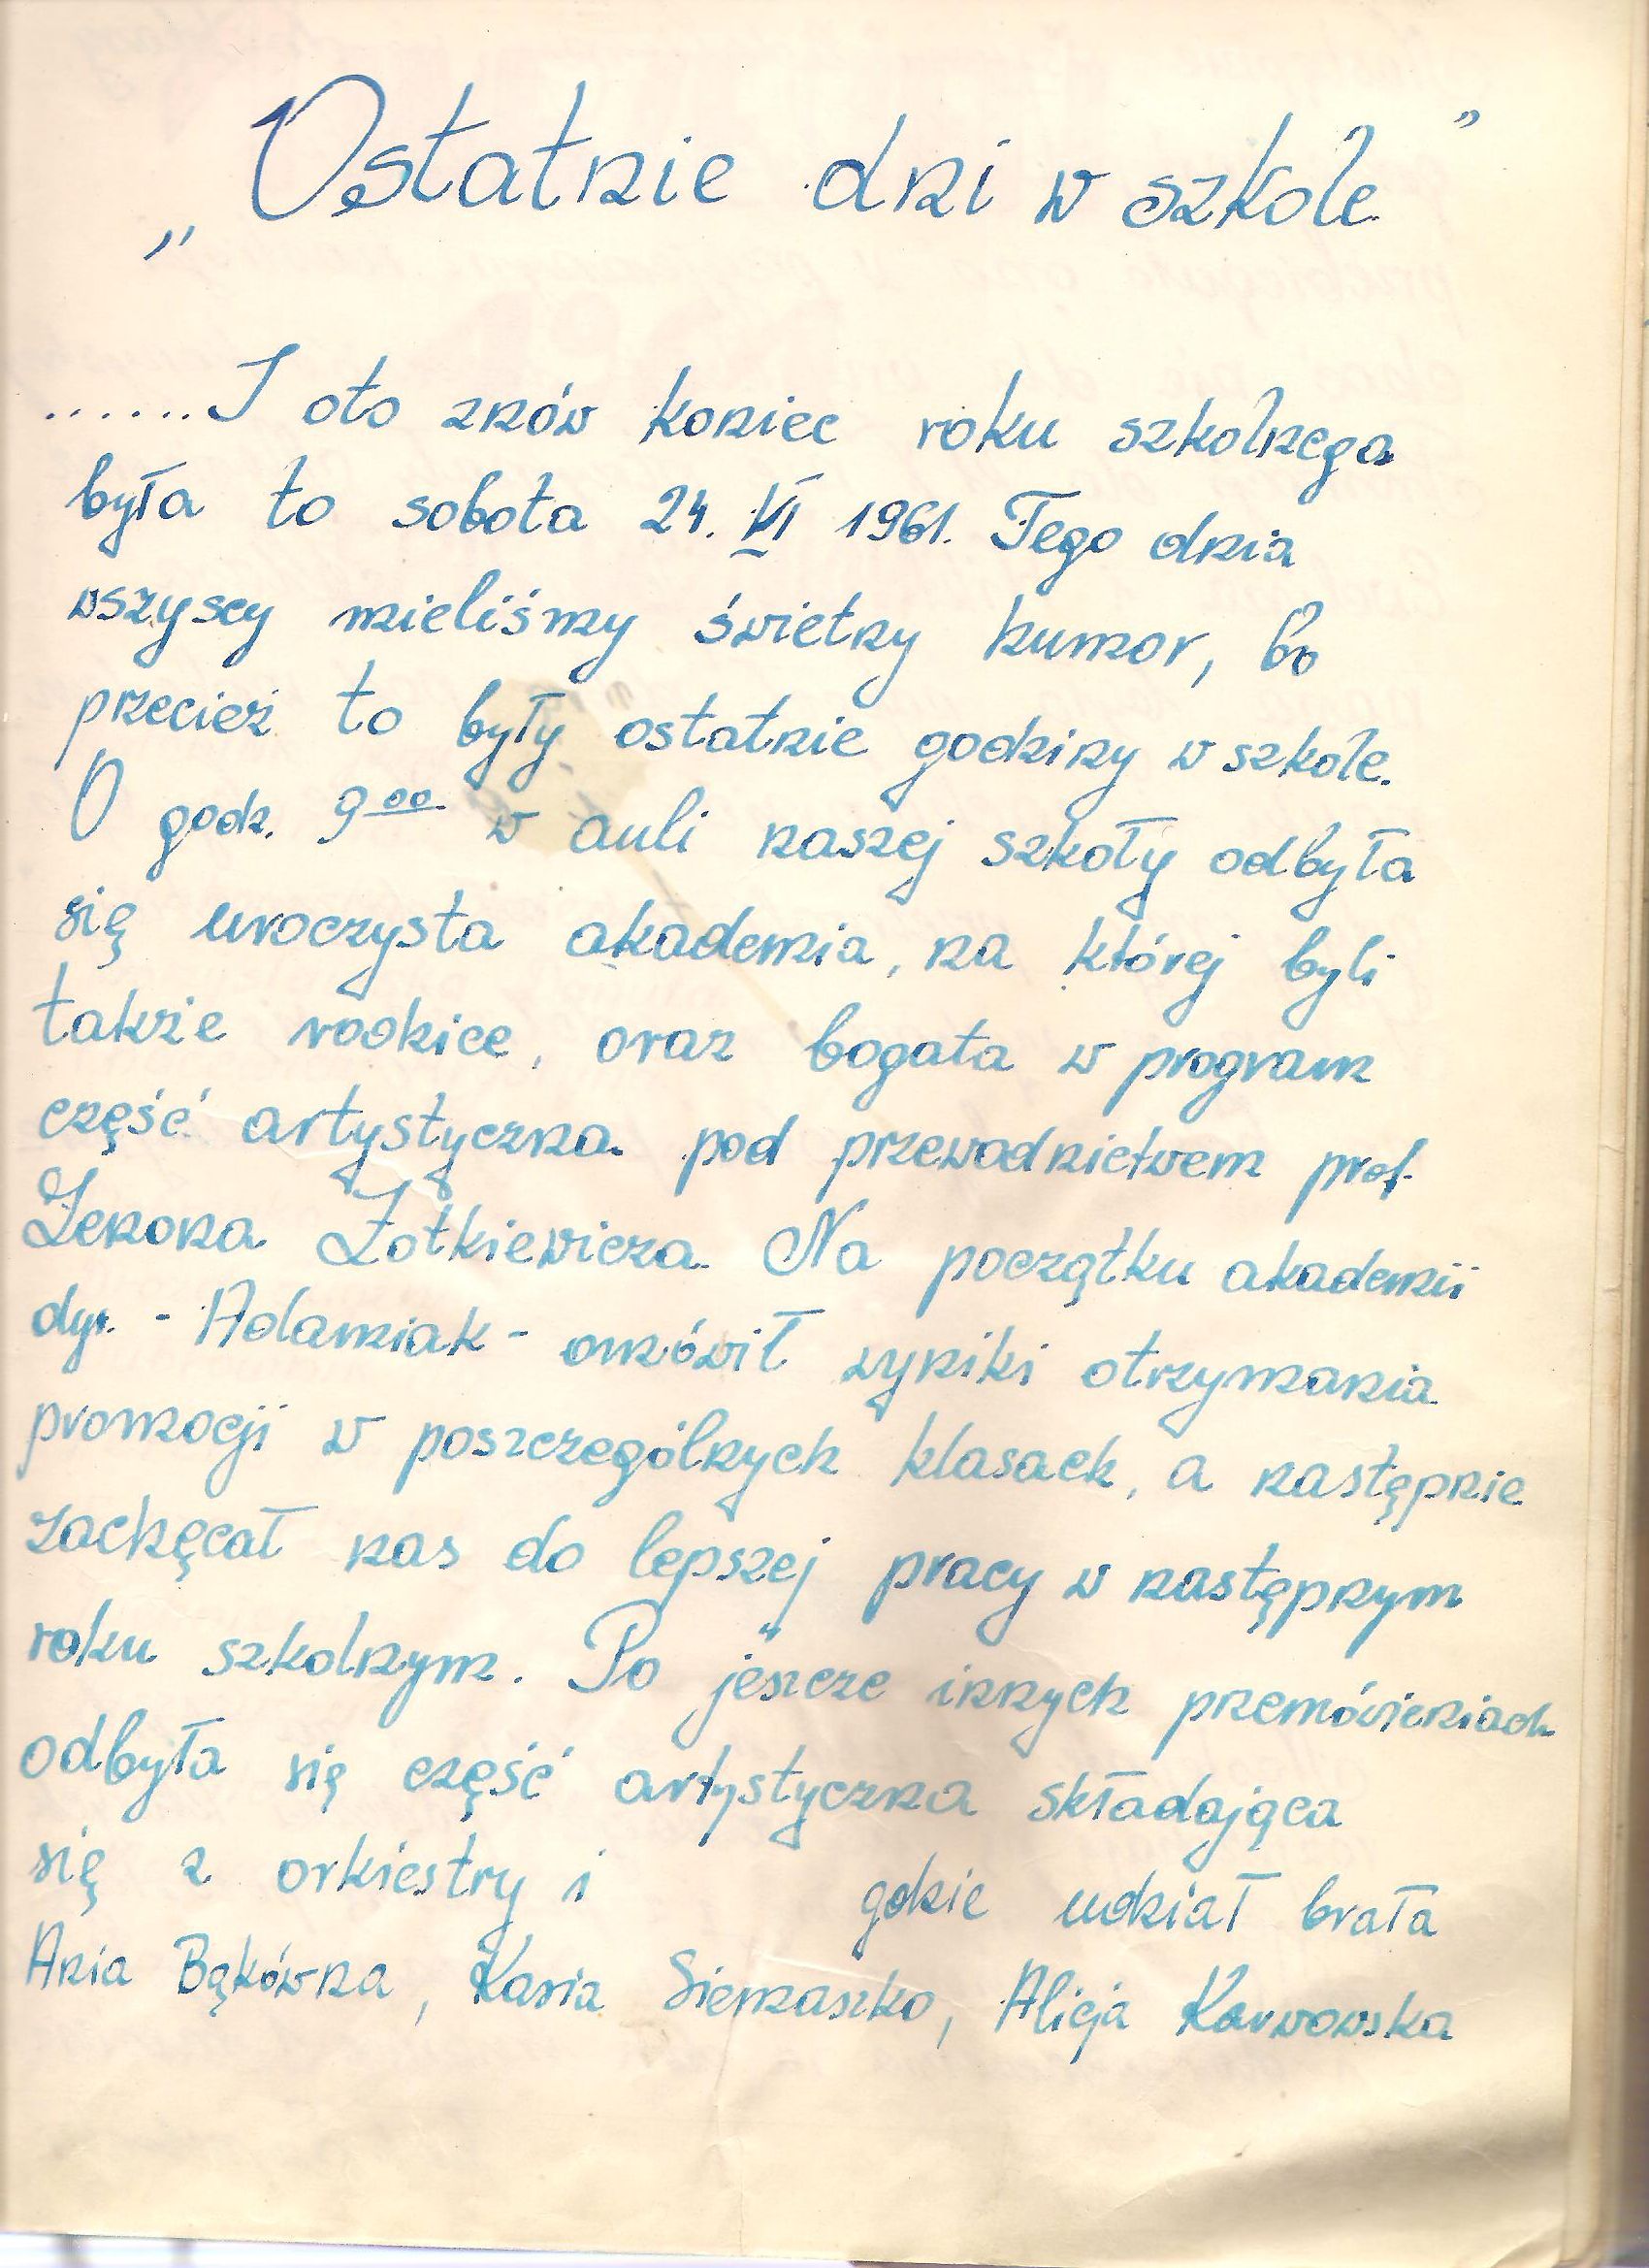 „Ostatnie dni w szkole”
.......I oto znów koniec roku szkolnego
była to sobota 24. VI 1961. Tego dnia
wszyscy mieliśmy świetny humor, bo
przecież to były ostatnie godziny w szkole.
O godz. 9⁰⁰ w auli naszej szkoły odbyła
się uroczysta akademia, na której byli
także rodzice, oraz bogata w program
część artystyczna pod przewodnictwem prof.
Zenona Żołkiewicza. Na początku akademii
dyr. - Adamiak - omówił wyniki otrzymania
promocji w poszczególnych klasach, a następnie
zachęcał nas do lepszej pracy w następnym
roku szkolnym. Po jeszcze innych przemówieniach
odbyła się część artystyczna składająca
się z orkiestry i gdzie udział brała
Ania Bąkówna, Kasia Siemaszko, Alicja Karwowska